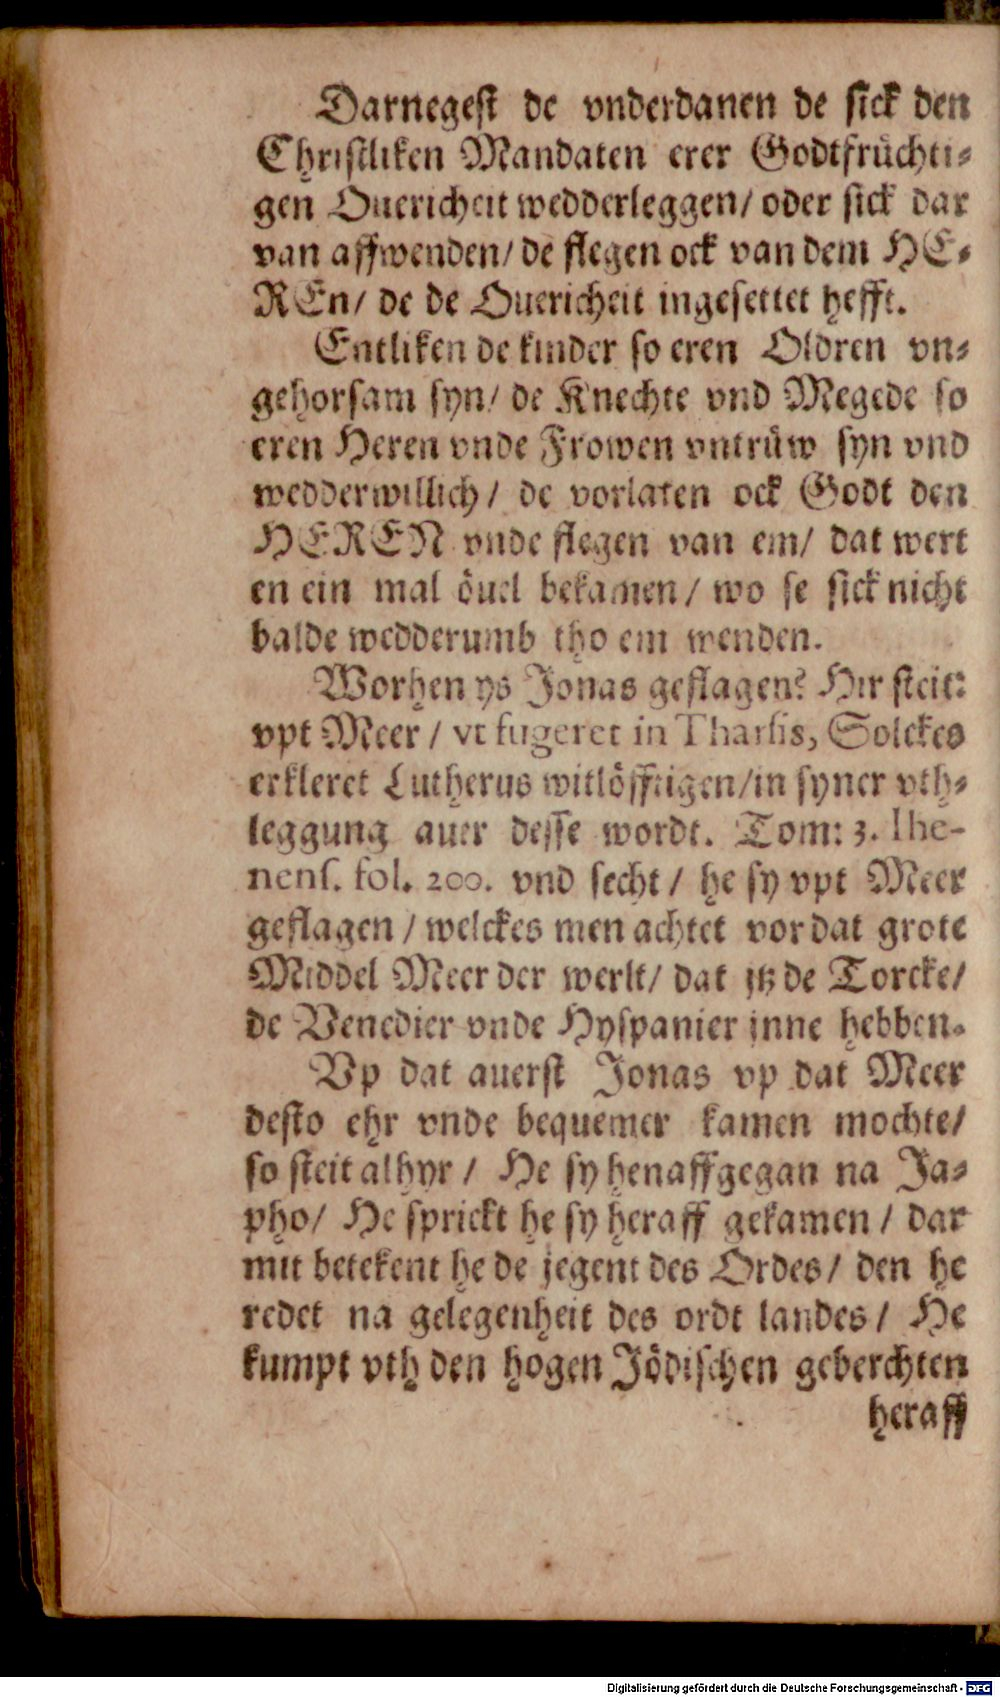 Darnegest de vnderdanen de sick den
Christliken Mandaten erer Godtfrüchti-
gen Ouericheit wedderleggen/ oder sick dar
van affwenden/ de flegen ock van dem HE-
REn/ de de Ouericheit ingesettet hefft.
Entliken de kinder so eren Oldren vn-
gehorsam syn/ de Knechte vnd Megede so
eren Heren vnde Frowen vntrüw syn vnd
wedderwillich/ de vorlaten ock Godt den
HEREN vnde flegen van em/ dat wert
en ein mal öuel bekamen/ wo se sick nicht
balde wedderumb tho em wenden.
Worhen ys Jonas geflagen? Hir steit:
vpt Meer/ vt fugeret in Tharsis, Solckes
erkleret Lutherus witlöfftigen/in syner vth-
leggung auer desse wordt. Tom: 3. Ihe-
nens. fol. 200. vnd secht/ he sy vpt Meer
geflagen/ welckes men achtet vor dat grote
Middel Meer der werlt/ dat jtz de Torcke/
de Venedier vnde Hyspanier jnne hebben.
Vp dat auerst Jonas vp dat Meer
desto ehr vnde bequemer kamen mochte/
so steit alhyr/ He sy henaffgegan na Ja-
pho/ He sprickt he sy heraff gekamen/ dar
mit betekent he de jegent des Ordes/ den he
redet na gelegenheit des ordt landes/ He
kumpt vth den hogen Jödischen geberchten
heraff
Digitalisierung gefördert durch die Deutsche Forschungsgemeinschaft - DFG